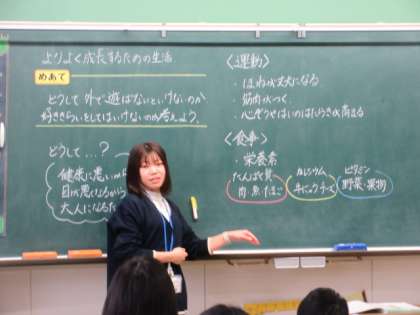 よりよく成長するための生活
めあて
どうして外で遊ばないといけないのか
好ききらいをしてはいけないのか考えよう。
どうして…?
健康に悪いから
目が悪くなるから
大人になるため
〈運動〉
・ほねが丈夫になる
・筋肉がつく
・心ぞうやはいのはたらきが高まる
〈食事〉
・栄養素
たんぱく質
肉・魚・たまご
カルシウム
牛にゅう・チーズ
ビタミン
野菜・果物